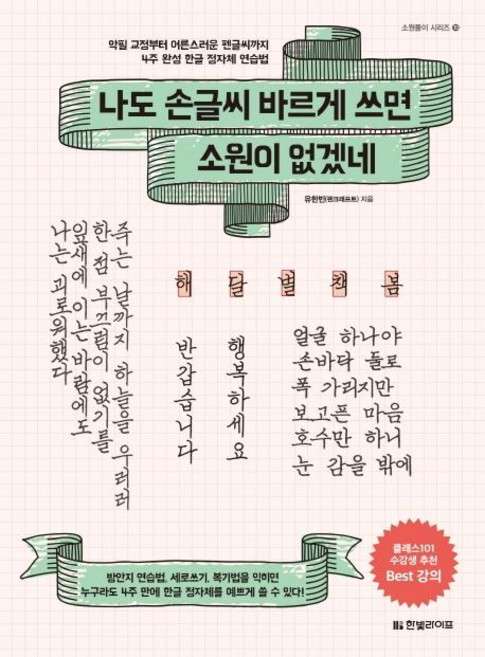 소원풀이 시리즈 10
악필 교정부터 어른스러운 펜글씨까지
4주 완성 한글 정자체 연습법
나도 손글씨 바르게 쓰면
소원이 없겠네
유한빈(펜크래프트) 지음
죽는 날까지 하늘을 우러러
한 점 부끄럼이 없기를
잎새에 이는 바람에도
나는 괴로워했다
해 달 별 책 봄
반갑습니다
행복하세요
얼굴 하나야
손바닥 둘로
폭 가리지만
보고픈 마음
호수만 하니
눈 감을 밖에
방안지 연습법, 세로쓰기, 복기법을 익히면
누구라도 4주 만에 한글 정자체를 예쁘게 쓸 수 있다!
클래스101
수강생 추천
Best 강의
한빛라이프